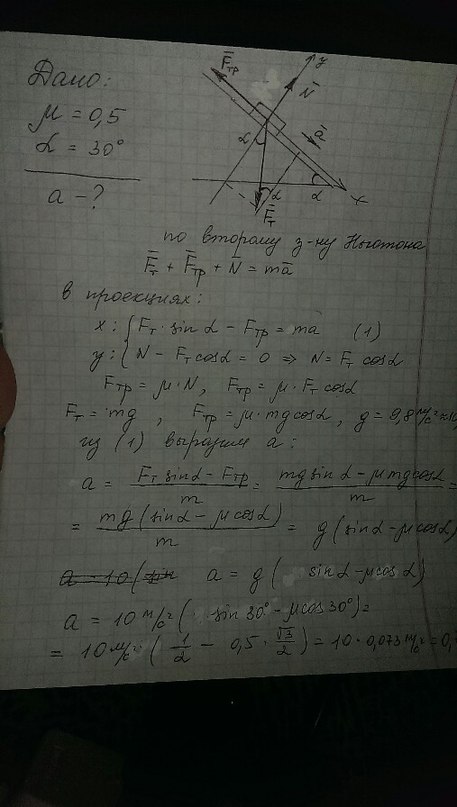 Дано:
μ = 0,5
α = 30°
a - ?
F̅тр
y
N̅
a̅
α
α
α
x
F̅т
по второму з-ну Ньютона
F̅т + F̅тр + N̅ = ma̅
в проекциях:
x: { Fт · sin α - Fтр = ma (1)
y: { N - Fт cos α = 0 ⇒ N = Fт cos α
Fтр = μ · N, Fтр = μ · Fт cos α
Fт = mg , Fтр = μ · mg cos α, g = 9,8 м/с² ≈ 10
из (1) выразим a:
a = (Fт sin α - Fтр)/m = (mg sin α - μ mg cos α)/m =
= mg (sin α - μ cos α)/m = g (sin α - μ cos α)
a = g ( sin α - μ cos α)
a = 10 м/с² ( sin 30° - μ cos 30°) =
= 10 м/с² ( 1/2 - 0,5 · √3/2 ) = 10 · 0,073 м/с² = 0,